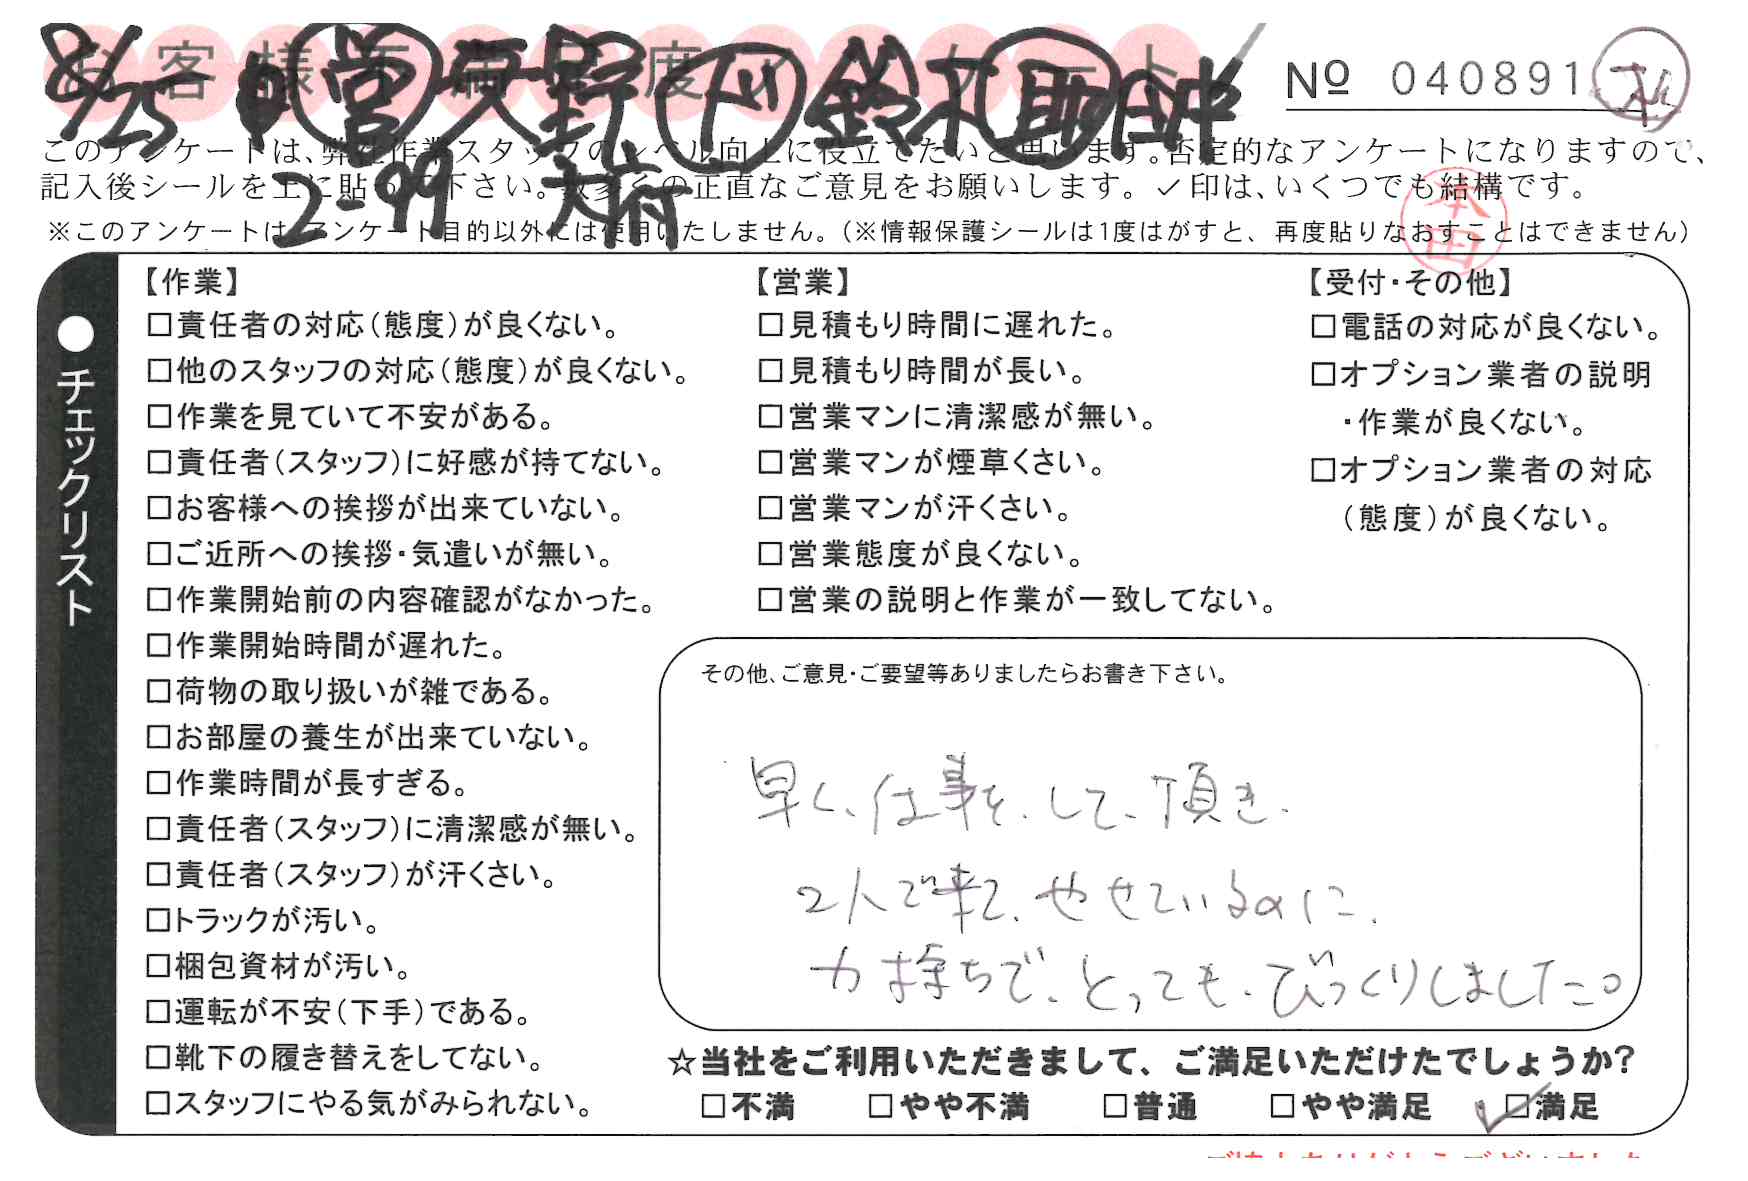 お客様不満足度アンケート
8/25 営 矢野 下 鈴木 助 田中
№ 040891
このアンケートは、弊社作業スタッフのレベル向上に役立てたいと思います。否定的なアンケートになりますので、
記入後シールを上に貼って下さい。数多くの正直なご意見をお願いします。✓印は、いくつでも結構です。
2-99 大府
本田
※このアンケートは、アンケート目的以外には使用いたしません。（※情報保護シールは1度はがすと、再度貼りなおすことはできません）
●チェックリスト
【作業】
□責任者の対応（態度）が良くない。
□他のスタッフの対応（態度）が良くない。
□作業を見ていて不安がある。
□責任者（スタッフ）に好感が持てない。
□お客様への挨拶が出来ていない。
□ご近所への挨拶・気遣いが無い。
□作業開始前の内容確認がなかった。
□作業開始時間が遅れた。
□荷物の取り扱いが雑である。
□お部屋の養生が出来ていない。
□作業時間が長すぎる。
□責任者（スタッフ）に清潔感が無い。
□責任者（スタッフ）が汗くさい。
□トラックが汚い。
□梱包資材が汚い。
□運転が不安（下手）である。
□靴下の履き替えをしてない。
□スタッフにやる気がみられない。
【営業】
□見積もり時間に遅れた。
□見積もり時間が長い。
□営業マンに清潔感が無い。
□営業マンが煙草くさい。
□営業マンが汗くさい。
□営業態度が良くない。
□営業の説明と作業が一致してない。
【受付・その他】
□電話の対応が良くない。
□オプション業者の説明
・作業が良くない。
□オプション業者の対応
（態度）が良くない。
その他、ご意見・ご要望等ありましたらお書き下さい。
早く、仕事を、して、頂き、
2人で来て、やせているのに、
力持ちで、とっても、びっくりしました。
☆当社をご利用いただきまして、ご満足いただけたでしょうか?
□不満 □やや不満 □普通 □やや満足 ✓□満足